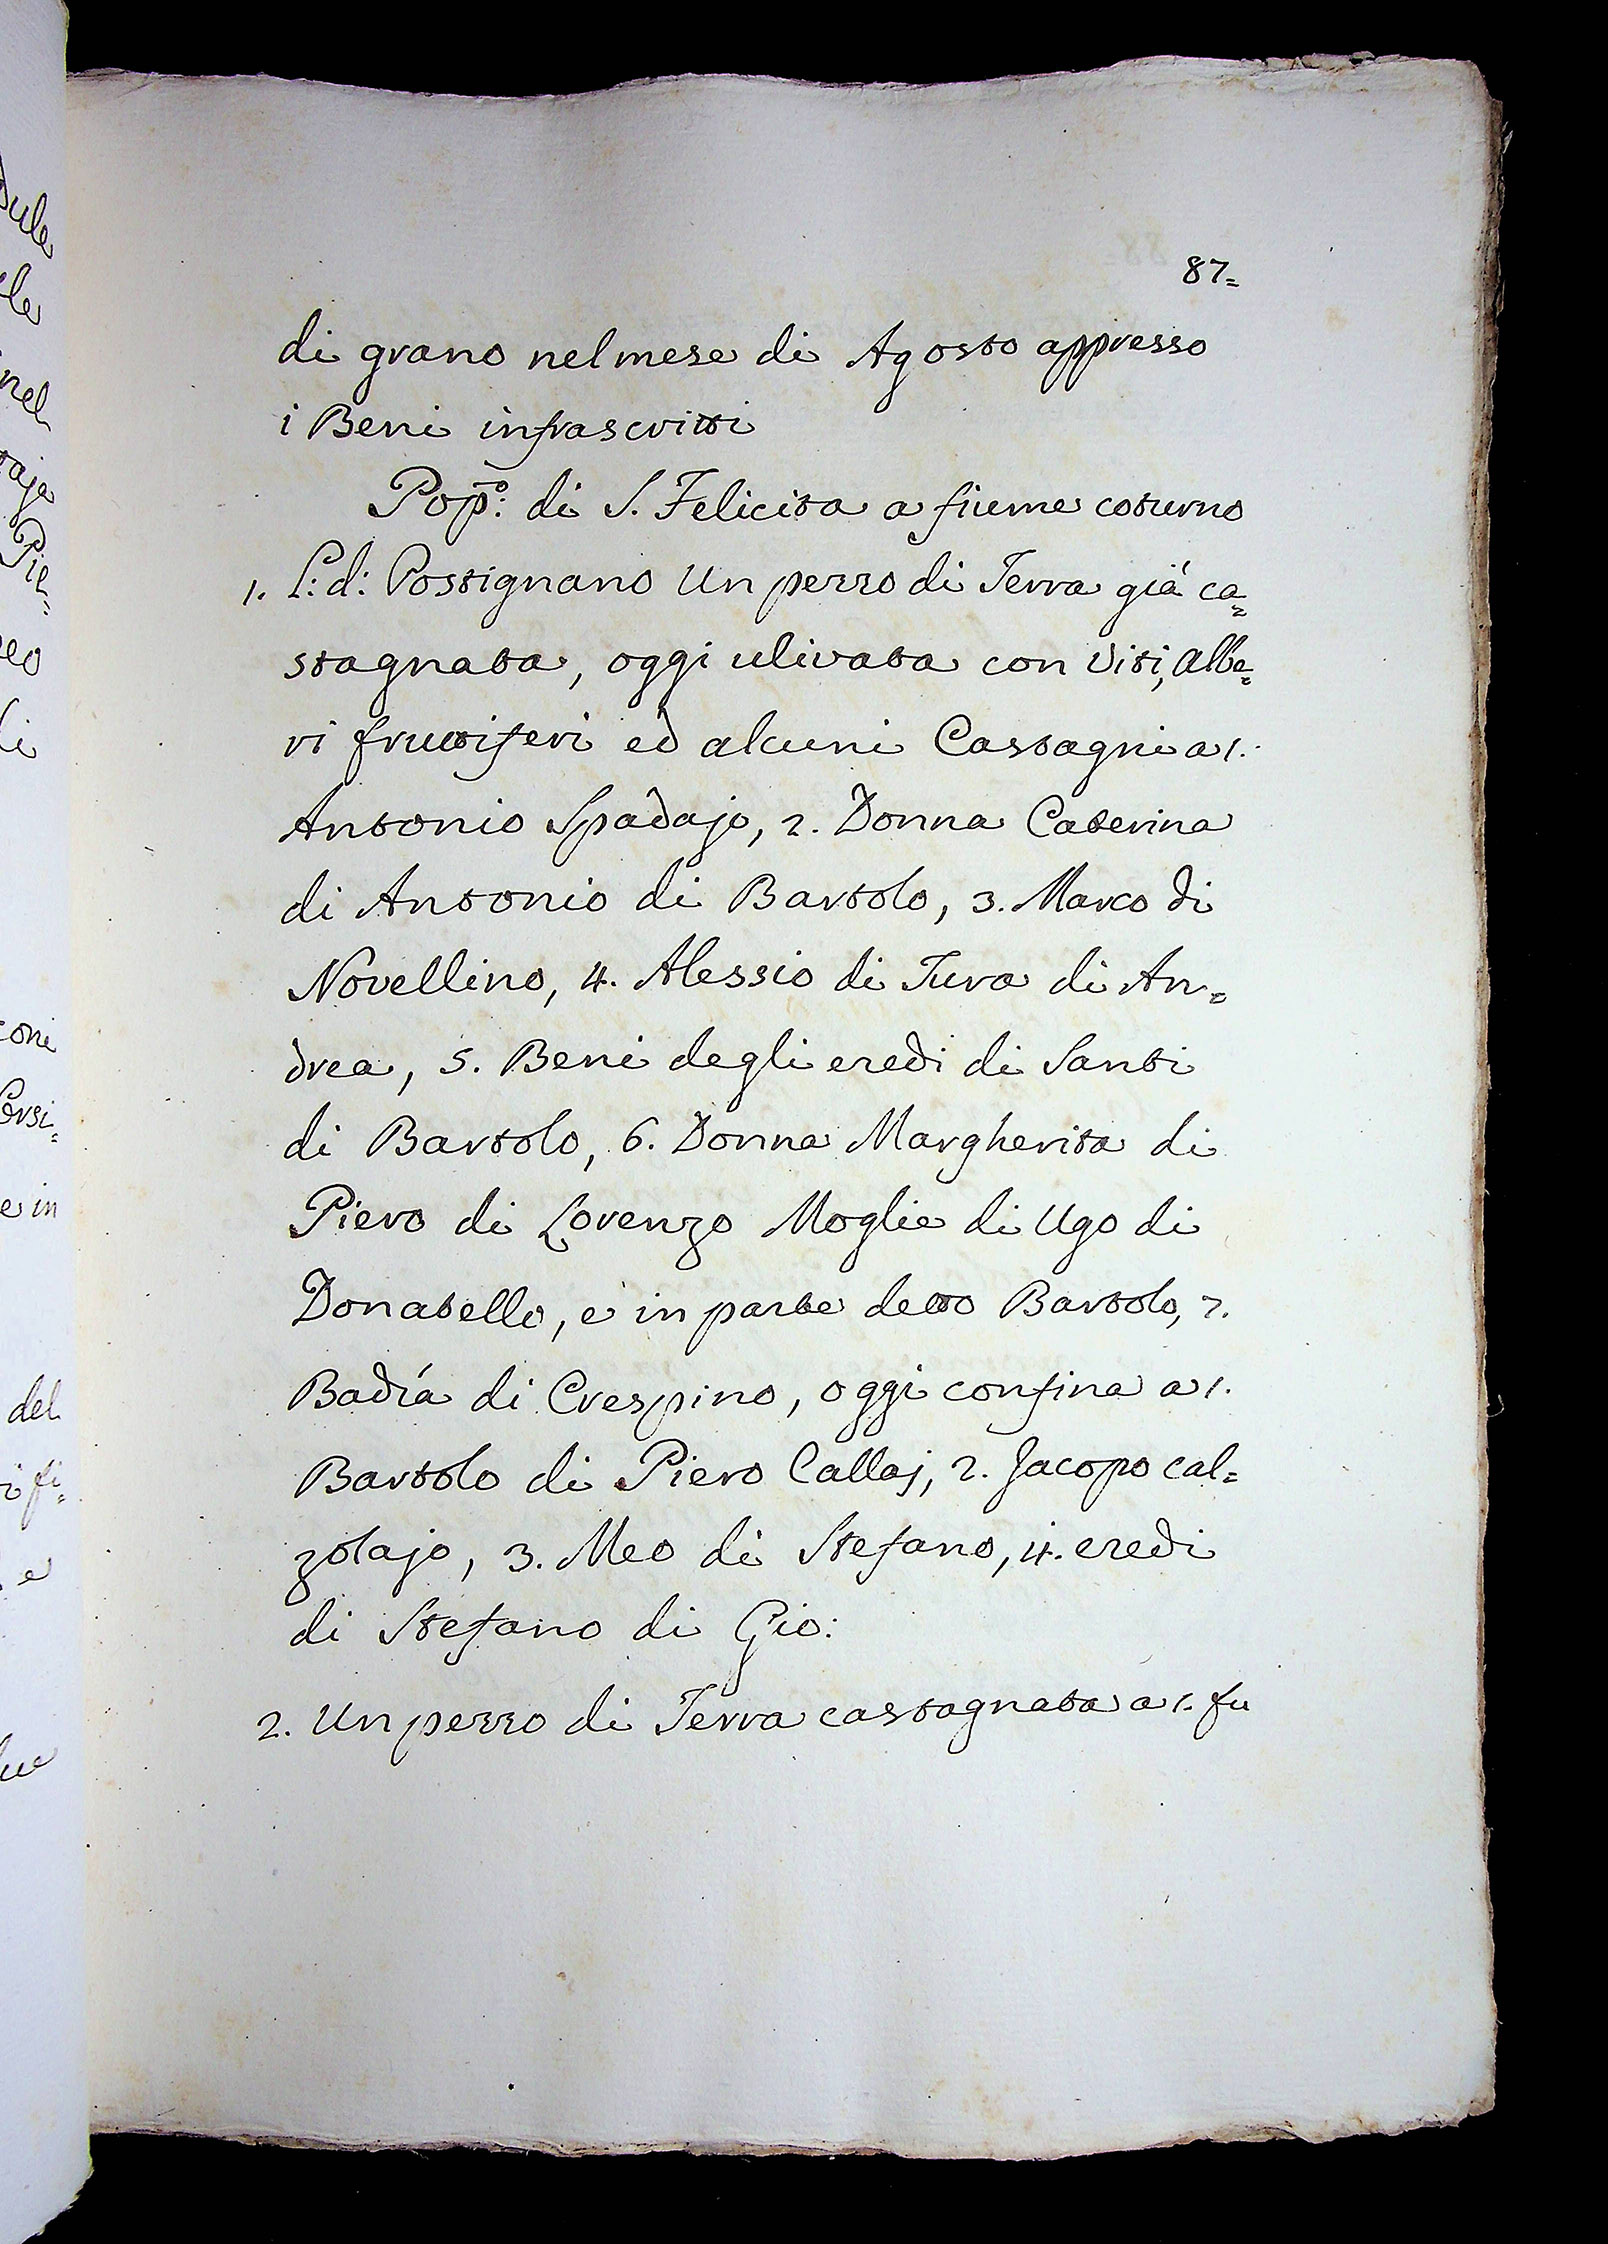 87=
di grano nel mese di Agosto appresso
i Beni infrascritti
Pop.º: di S. Felicita a fiume coturno
1. L: d: Postignano Un pezzo di Terra già ca=
stagnata, oggi ulivata con Viti, Albe=
ri fruttiferi ed alcuni Castagni a 1.
Antonio Spadajo, 2. Donna Caterina
di Antonio di Bartolo, 3. Marco di
Novellino, 4. Alessio di Tura di An=
drea, 5. Beni degli eredi di Santi
di Bartolo, 6. Donna Margherita di
Piero di Lorenzo Moglie di Ugo di
Donatello, e in parte detto Bartolo, 7.
Badía di Crespino, oggi confina a 1.
Bartolo di Piero Callaj, 2. Jacopo cal=
zolajo, 3. Meo di Stefano, 4. eredi
di Stefano di Gio:
2. Un pezzo di Terra castagnata a 1. fu